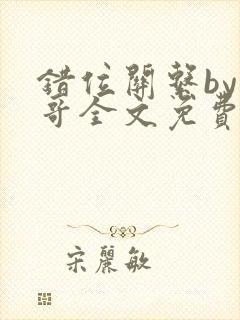 錯位關繫by
哥全文免費
宋麗敏